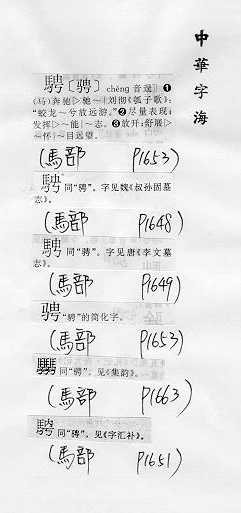 中華字海
騁〔骋〕 chěng 音逞 ❶
(马)奔驰▷驰～｜刘彻《瓠子歌》:
“蛟龙～兮放远游。”❷尽量表现;
发挥▷～能｜～志。❸放开;舒展▷
～怀｜～目远望。
(馬部 P1653)
同“骋”。字见魏《叔孙固墓
志》。
(馬部 P1648)
同“骋”。字见唐《李文墓
志》。
(馬部 P1649)
骋 “騁”的简化字。
(馬部 P1653)
同“骋”。见《集韵》。
(馬部 P1663)
同“骋”。见《字汇补》。
(馬部 P1651)